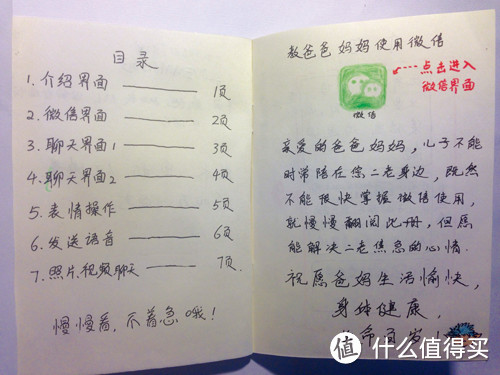 目录
1.介绍界面 1页
2.微信界面 2页
3.聊天界面1 3页
4.聊天界面2 4页
5.表情操作 5页
6.发送语音 6页
7.照片,视频聊天 7页.
慢慢看,不着急哦!
教爸爸妈妈使用微信
点击进入
微信界面
微信
亲爱的爸爸妈妈,儿子不能
时常陪在您二老身边,既然
不能很快掌握微信使用,
就慢慢翻阅此册,但愿
能解决二老焦急的心情.
祝愿爸妈生活愉快,
身体健康,
命百岁!
值 什么值得买